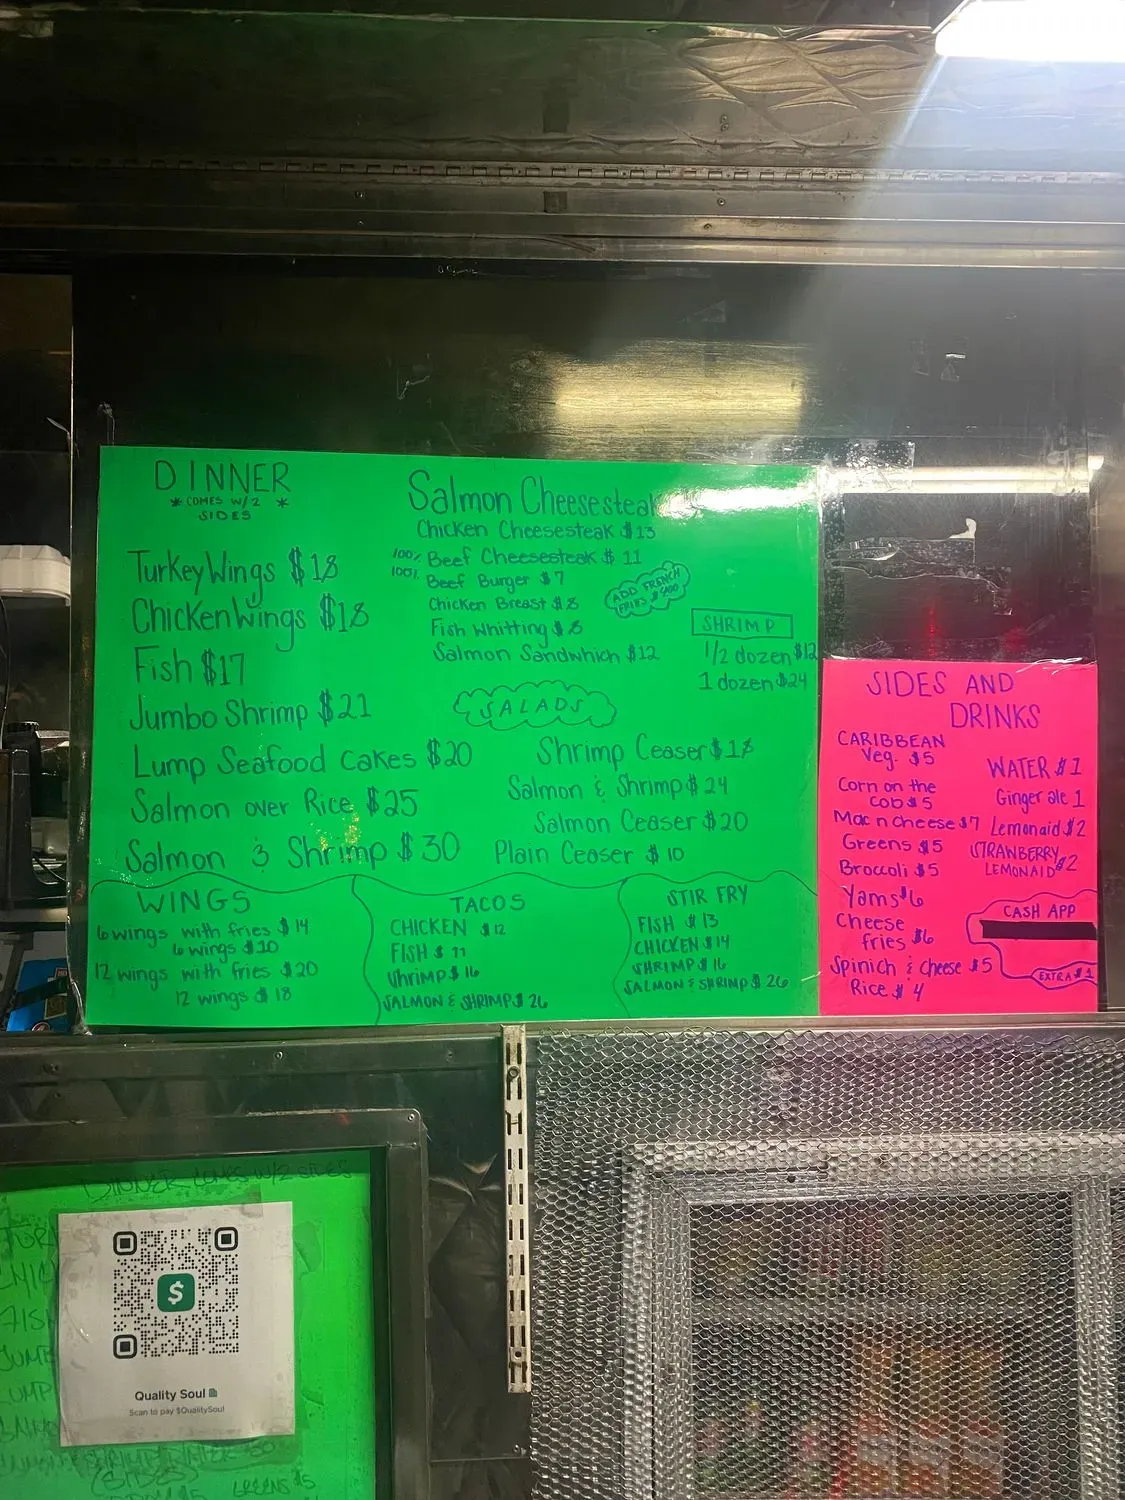 DINNER
* COMES W/2 *
SIDES
Turkey Wings $18
Chicken Wings $18
Fish $17
Jumbo Shrimp $21
Lump Seafood Cakes $20
Salmon over Rice $25
Salmon & Shrimp $30
Salmon Cheesesteak
Chicken Cheesesteak $13
100% Beef Cheesesteak $11
100% Beef Burger $7
Chicken Breast $8
Fish Whitting $8
Salmon Sandwhich $12
ADD FRENCH
FRIES $4.00
SHRIMP
1/2 dozen $12
1 dozen $24
SALADS
Shrimp Ceaser $18
Salmon & Shrimp $24
Salmon Ceaser $20
Plain Ceaser $10
WINGS
6 wings with fries $14
6 wings $10
12 wings with fries $20
12 wings $18
TACOS
CHICKEN $12
FISH $11
Shrimp $16
SALMON & SHRIMP $26
STIR FRY
FISH $13
CHICKEN $14
SHRIMP $16
SALMON & SHRIMP $26
SIDES AND
DRINKS
CARIBBEAN
Veg. $5
Corn on the
Cob $5
Mac n cheese $7
Greens $5
Broccoli $5
Yams $6
Cheese
fries $6
Spinich & Cheese $5
Rice $4
WATER $1
Ginger ale 1
Lemonaid $2
STRAWBERRY
LEMONAID $2
CASH APP
EXTRA $1
DINNER COMES W/2 SIDES
$
Quality Soul
Scan to pay $QualitySoul
GREENS $5